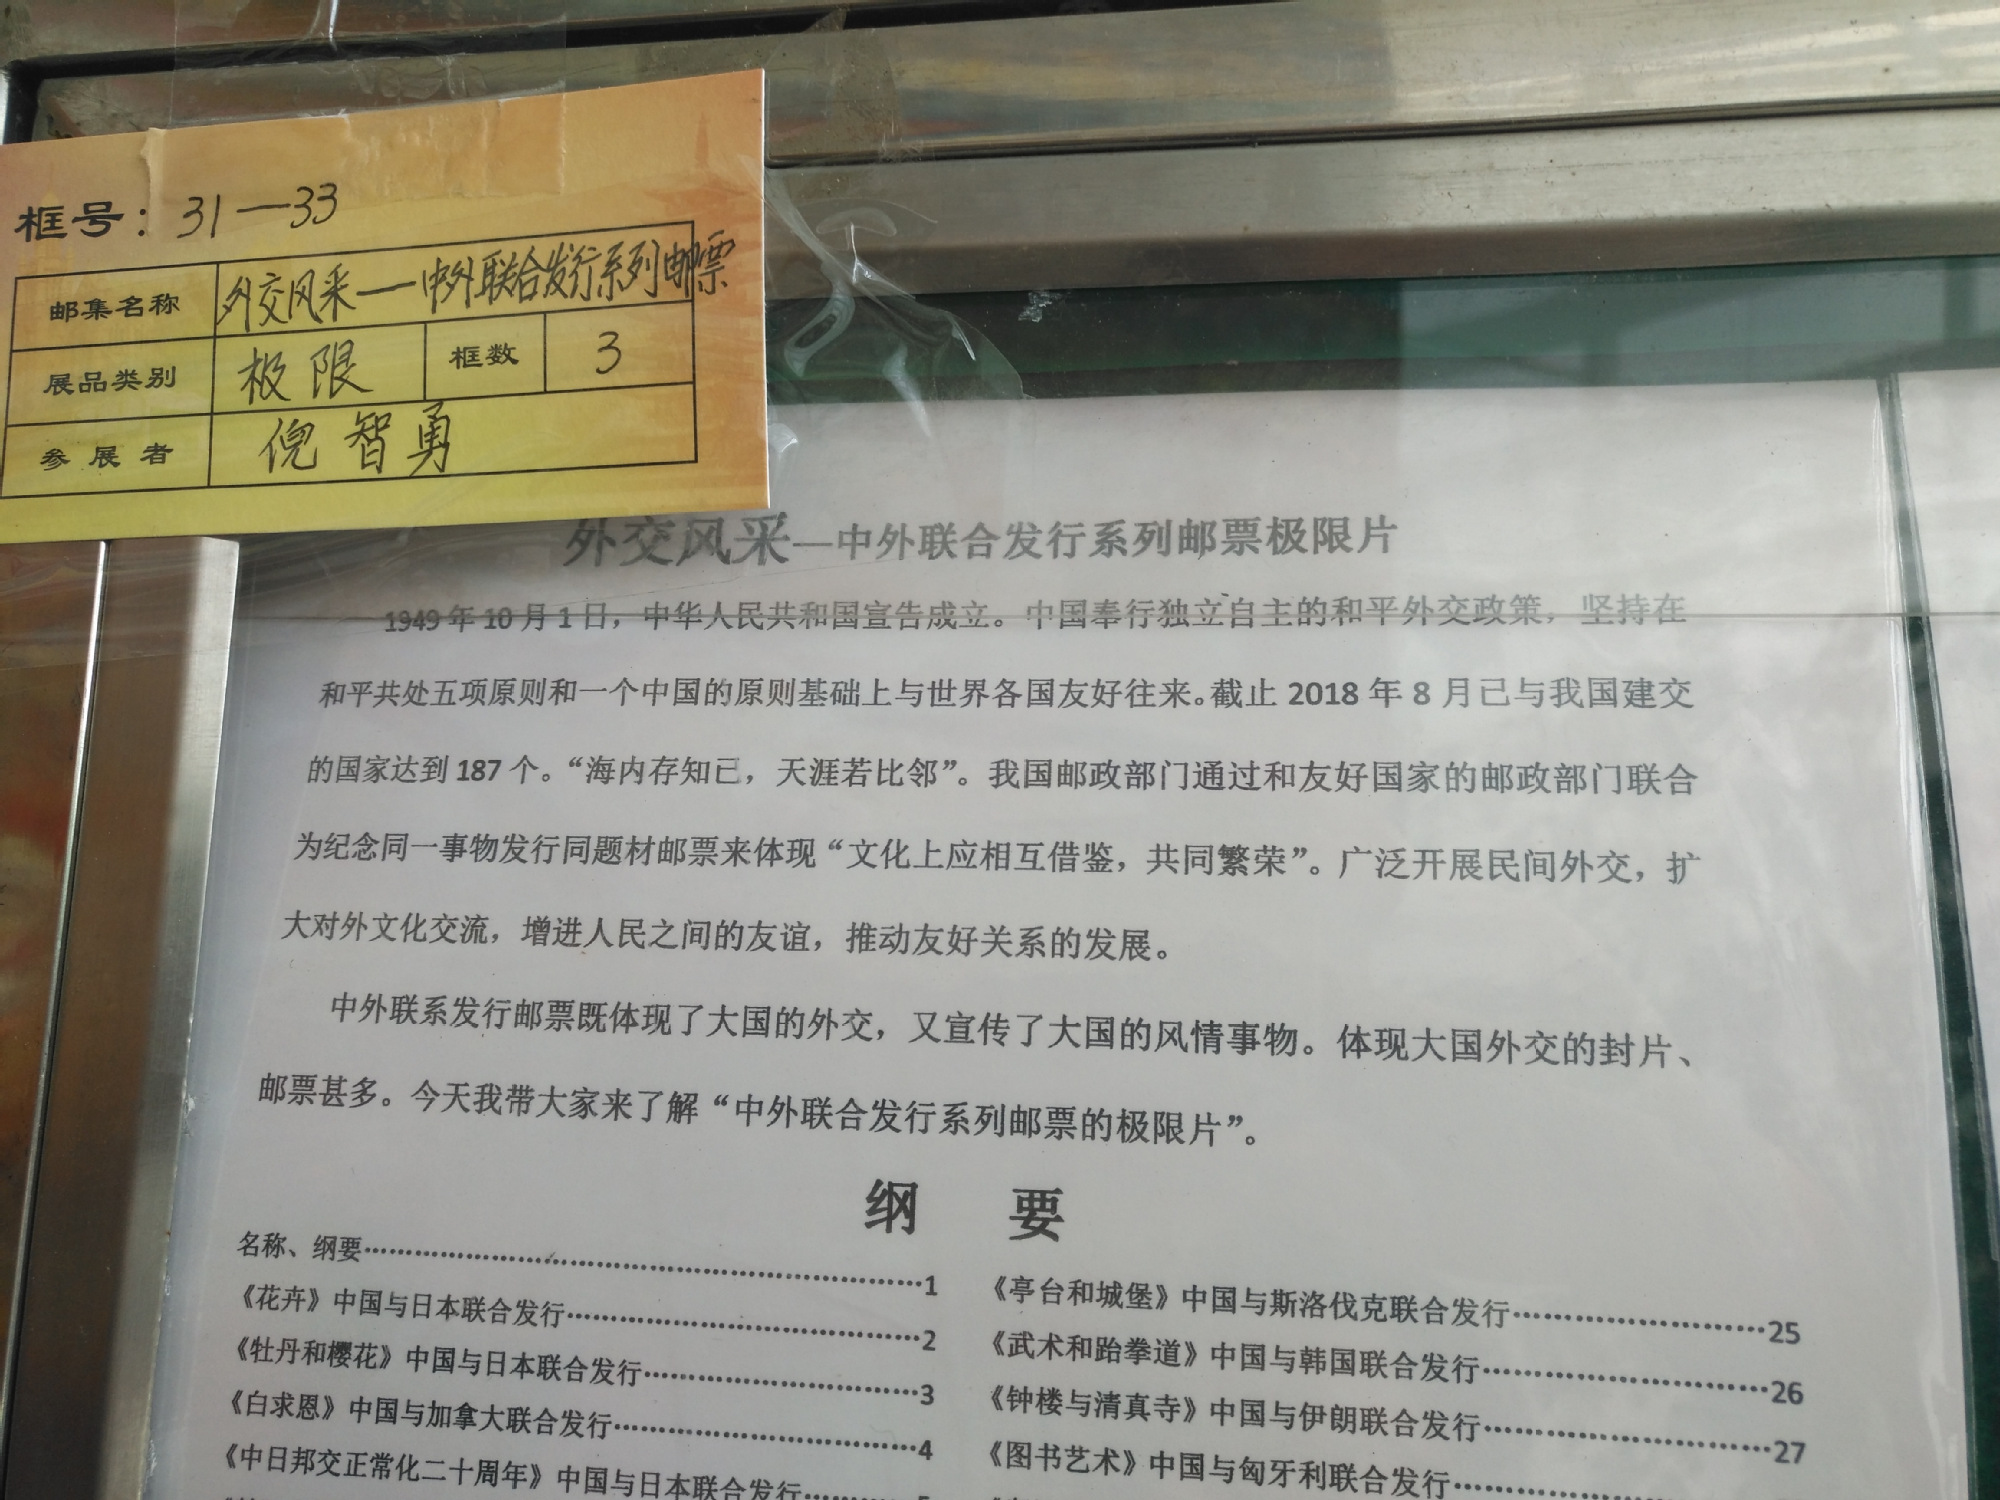 框号：31—33
邮集名称 外交风采—中外联合发行系列邮票
展品类别 极限 框数 3
参展者 倪智勇
外交风采—中外联合发行系列邮票极限片
1949年10月1日，中华人民共和国宣告成立。中国奉行独立自主的和平外交政策，坚持在
和平共处五项原则和一个中国的原则基础上与世界各国友好往来。截止 2018 年 8 月已与我国建交
的国家达到 187 个。“海内存知已，天涯若比邻”。我国邮政部门通过和友好国家的邮政部门联合
为纪念同一事物发行同题材邮票来体现“文化上应相互借鉴，共同繁荣”。广泛开展民间外交，扩
大对外文化交流，增进人民之间的友谊，推动友好关系的发展。
中外联系发行邮票既体现了大国的外交，又宣传了大国的风情事物。体现大国外交的封片、
邮票甚多。今天我带大家来了解“中外联合发行系列邮票的极限片”。
纲 要
名称、纲要……………………………………1
《花卉》中国与日本联合发行……………………2
《牡丹和樱花》中国与日本联合发行………………3
《白求恩》中国与加拿大联合发行…………………4
《中日邦交正常化二十周年》中国与日本联合发行……5
《亭台和城堡》中国与斯洛伐克联合发行……………25
《武术和跆拳道》中国与韩国联合发行………………26
《钟楼与清真寺》中国与伊朗联合发行………………27
《图书艺术》中国与匈牙利联合发行………………